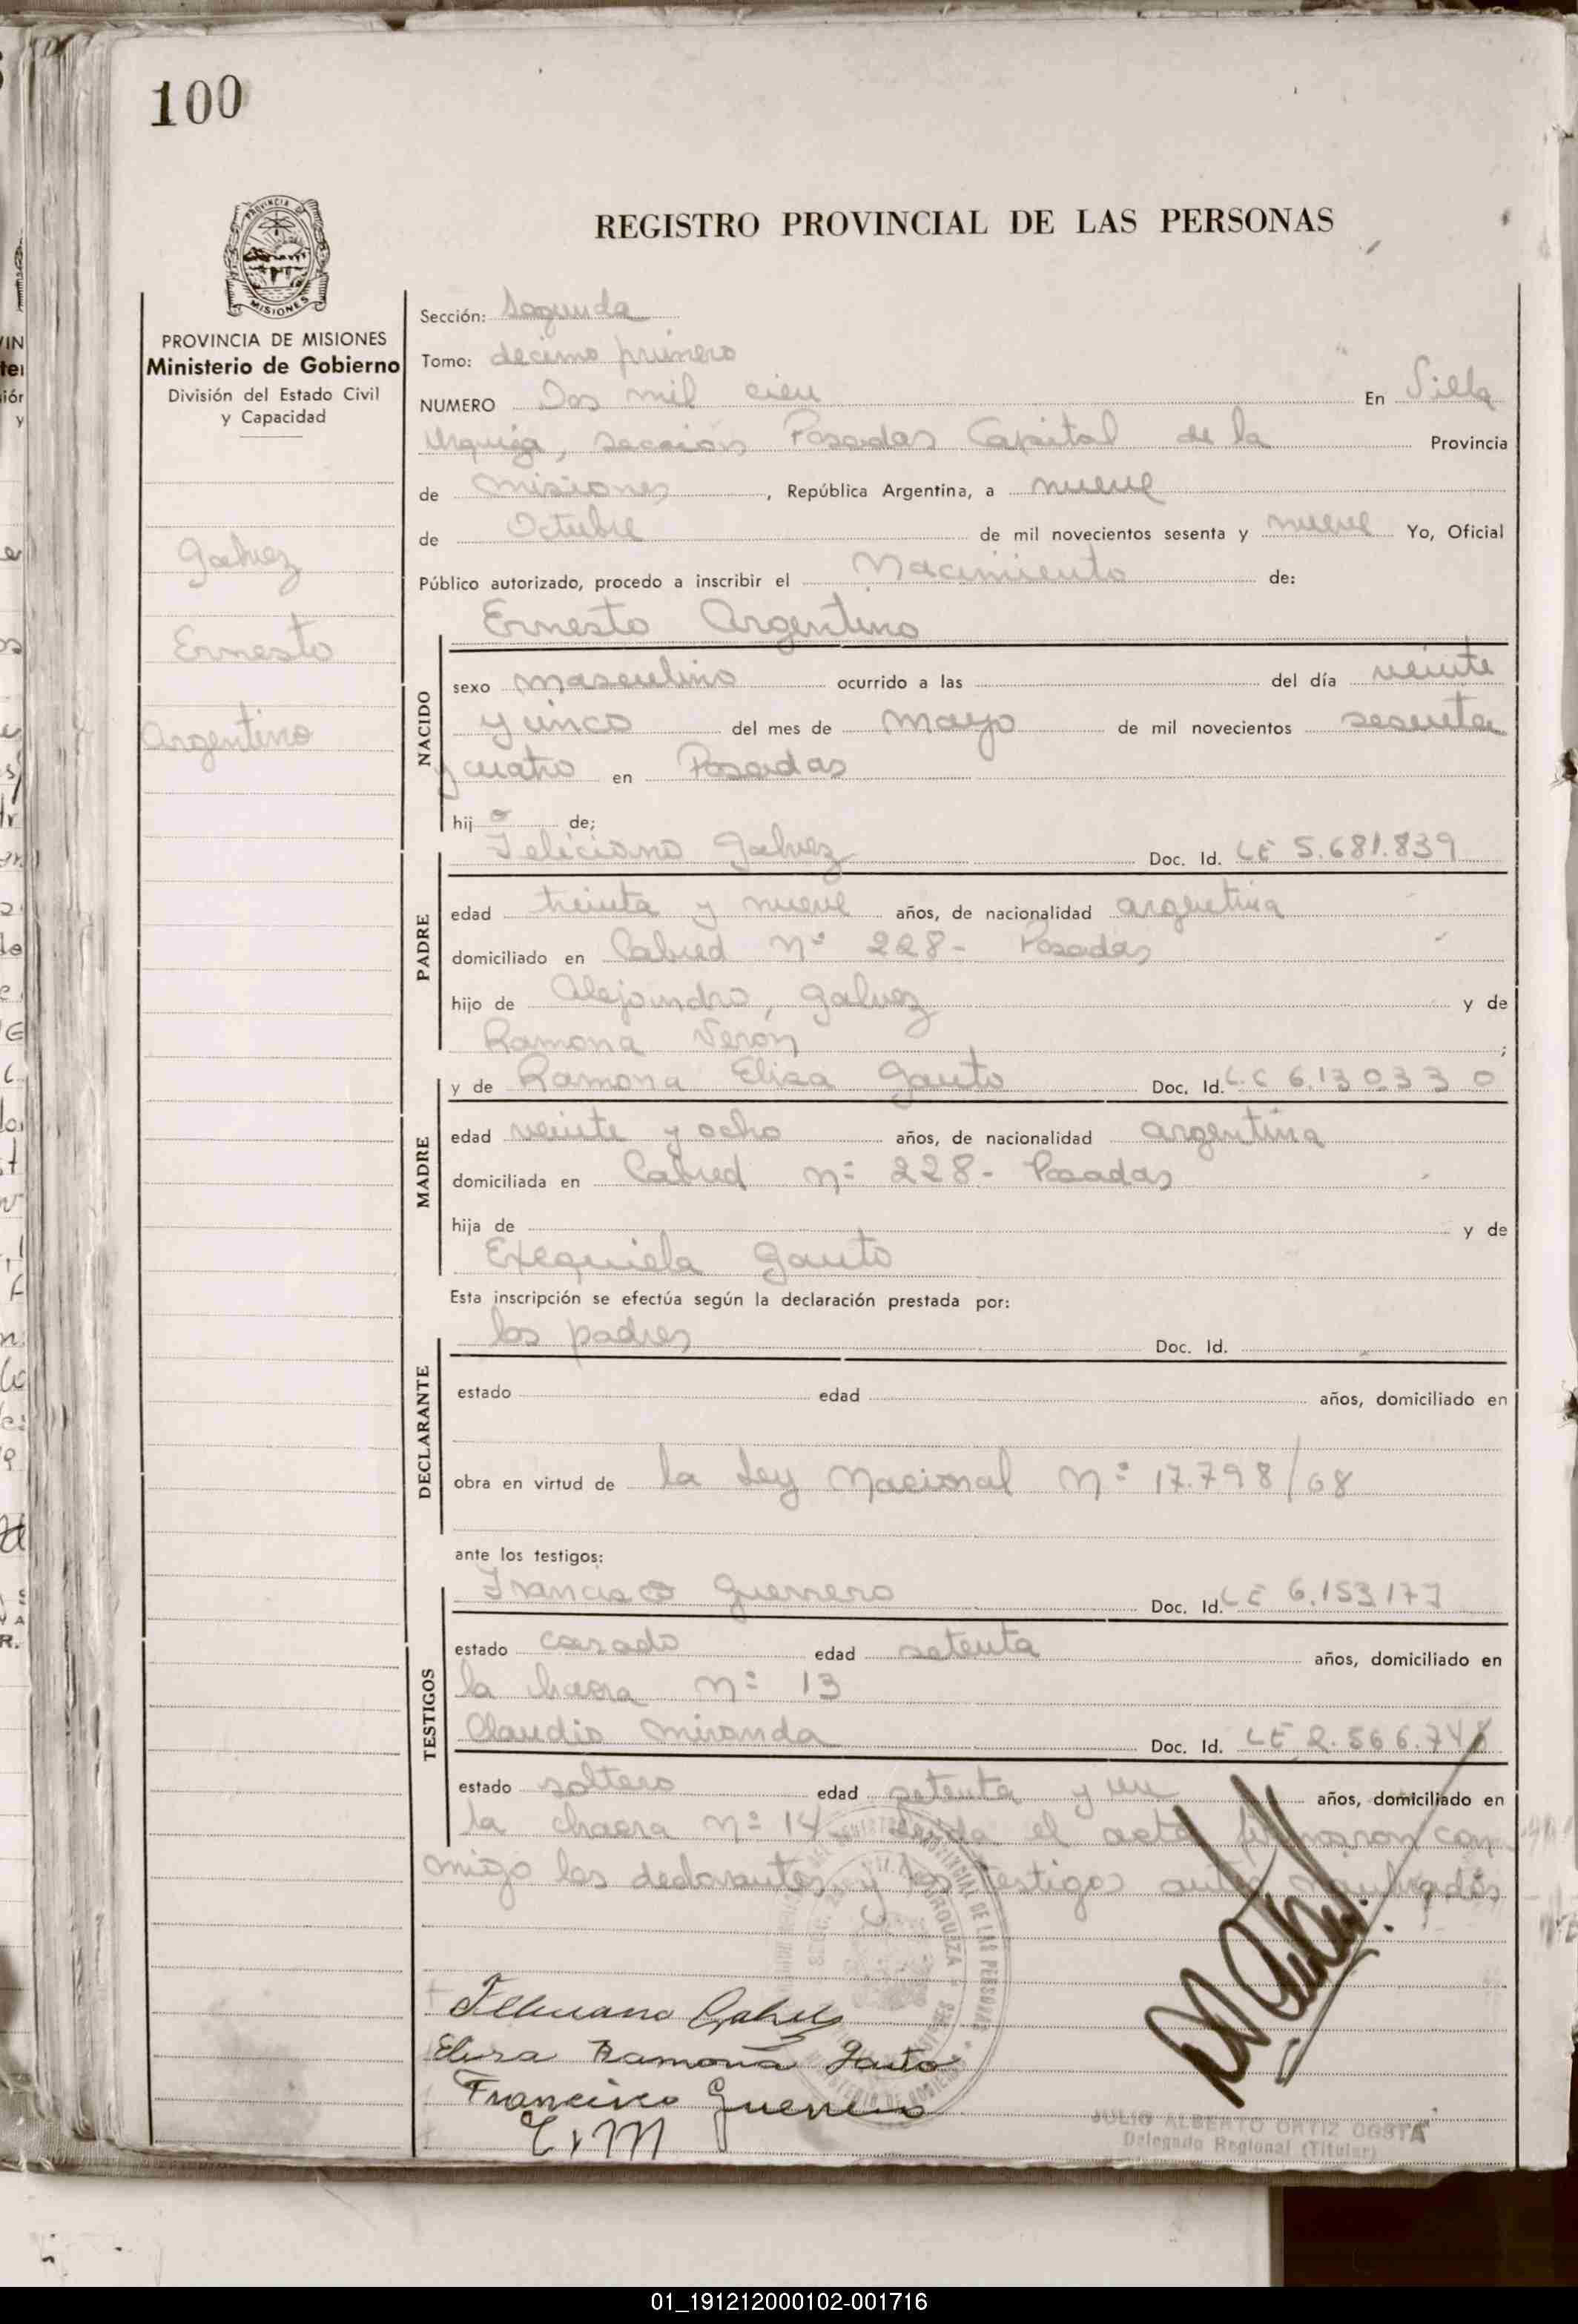 100
PROVINCIA DE MISIONES
Ministerio de Gobierno
División del Estado Civil
y Capacidad
Galvez
Ernesto
Argentino
REGISTRO PROVINCIAL DE LAS PERSONAS
Sección: Segunda
Tomo: decimo primero
NUMERO Dos mil cien En Villa
Urquiza, sección Posadas Capital de la Provincia
de Misiones, República Argentina, a nueve
de Octubre de mil novecientos sesenta y nueve Yo, Oficial
Público autorizado, procedo a inscribir el Nacimiento de:
Ernesto Argentino
NACIDO
sexo masculino ocurrido a las del día veinte
y cinco del mes de mayo de mil novecientos sesenta
y cuatro en Posadas
hijo de;
Feliciano Galvez Doc. Id. LE 5.681.839
PADRE
edad treinta y nueve años, de nacionalidad argentina
domiciliado en Cabred Nº 228- Posadas
hijo de Alejandro, Galvez y de
Ramona Veron ;
y de Ramona Elisa Gauto Doc. Id. L.C 6.130.330
MADRE
edad veinte y ocho años, de nacionalidad argentina
domiciliada en Cabred Nº 228- Posadas
hija de y de
Exequiela Gauto
Esta inscripción se efectúa según la declaración prestada por:
los padres Doc. Id.
DECLARANTE
estado edad años, domiciliado en
obra en virtud de la Ley Nacional Nº 17.798/68
ante los testigos:
Francisco Guerrero Doc. Id. LE 6.153.177
TESTIGOS
estado casado edad setenta años, domiciliado en
la chacra Nº 13
Claudio Miranda Doc. Id. LE 2.566.748
estado soltero edad setenta y un años, domiciliado en
la chacra Nº 14 Leida el acta firmaron con
migo los declarantes y los testigos antes nombrados
Feliciano Galvez
Elisa Ramona Gauto
Francisco Guerrero
JULIO ALBERTO ORTIZ COSTA
Delegado Regional (Titular)
01_191212000102-001716